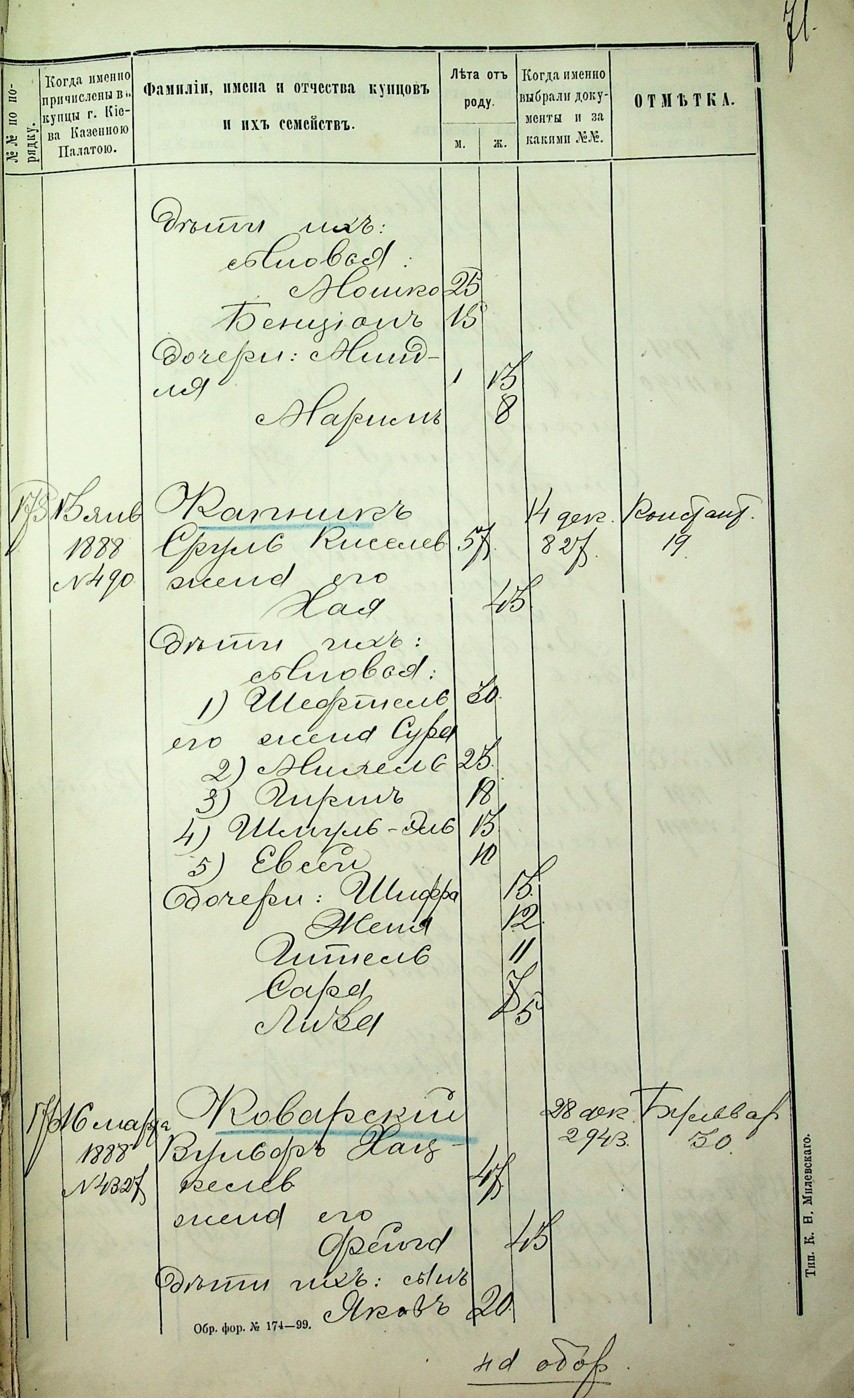 71.
№№ по по-
рядку.
Когда именно
причислены въ
купцы г. Кіе-
ва Казенною
Палатою.
Фамиліи, имена и отчества купцовъ
и ихъ семействъ.
Лѣта отъ
роду.
м. ж.
Когда именно
выбрали доку-
менты и за
какими №№.
ОТМѢТКА.
Дѣти ихъ:
сыновья:
Мошко 25
Бенціонъ 15
дочери: Минд-
ля 13
Маримъ 8
175 15 янв Капникъ 14 дек. Констант.
1888 Сруль Киселев 57. 827. 19
№490 жена его
Хая 45
Дѣти ихъ:
сыновья:
1) Шефтель 30.
его жена Сура
2) Михель 23.
3) Гиршъ 18
4) Шмуль-Эль 15
5) Евсей 10
Дочери: Шифра 15.
Женя 12
Гитель 11
Сара 7
Лиза 5
176 16 марта Коварскій 28 дек. Бульвар
1888 Вульфъ Хац- 2943. 30.
№4327 келев 47
жена его
Фейга 45
Дѣти ихъ: сынъ
Яковъ 20.
Обр. фор. № 174—99.
на обор.
Тип. К. Н. Милевскаго.